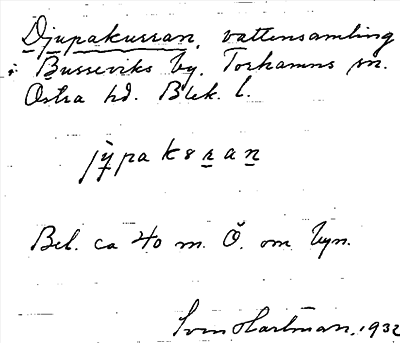 Djupakursan, vattensamling
i Busseviks by. Torhamns sn.
Östra hd. Blek. l.
jỳpaksran
Bel. ca 40 m. Ö. om byn.
Sven Hartman, 1932